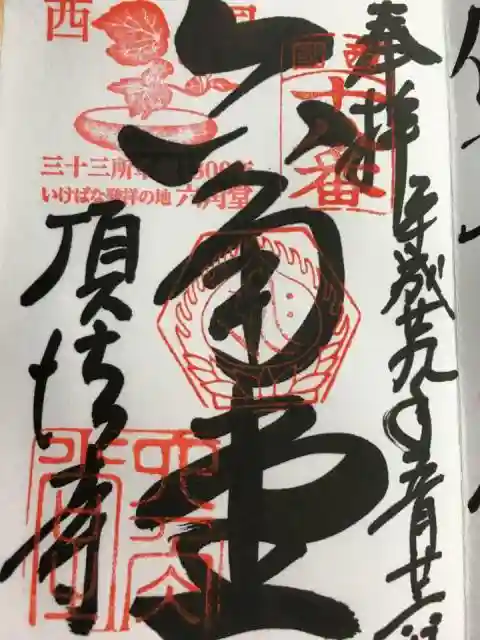 奉拝 平成廿九年
西国
十八番
西国
三十三所草創1300年
いけばな発祥の地 六角堂
六角堂
頂法寺